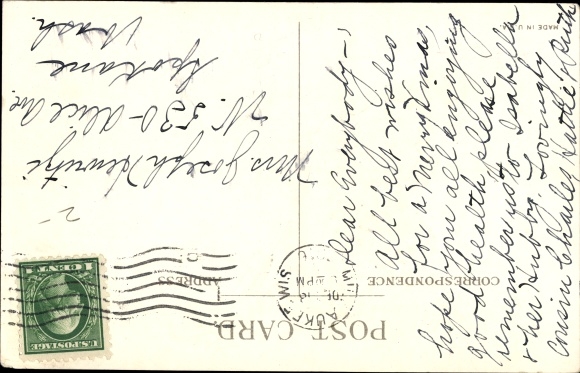 MADE IN U.S.
POST CARD.
CORRESPONDENCE
ADDRESS
U.S. POSTAGE
1 CENT 1
WIS.
PM
Dear Everybody—,
all best wishes
for a merry Xmas,
hope you all enjoying
good health, please
remember us to Isabella
& her hubby, Lovingly
Cousin Charles, Hattie & Ruth
Mrs Joseph
W. 530- Alice Ave.
Spokane
Wash.